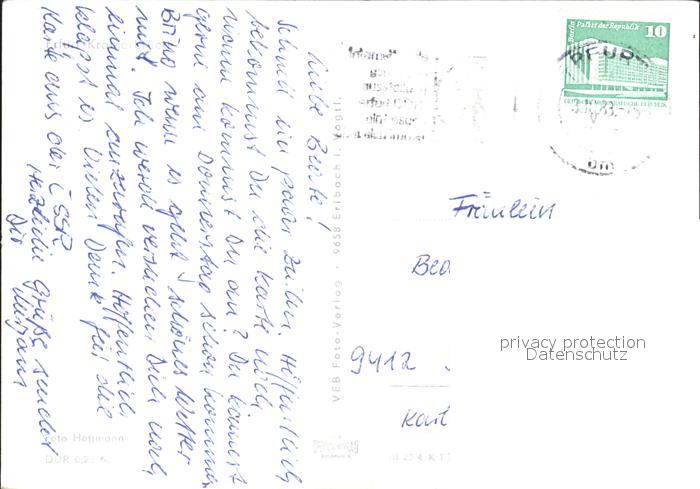 Liebe Beate!
Schnell ein paar Zeilen. Hoffentlich
bekommst Du die Karte noch.
Wann kommst Du an? Du kannst
gern am Donnerstag schon kommen
Bring wenn es geht schönes Wetter
mit. Ich werde versuchen Dich noch
einmal anzurufen. Hoffentlich
klappt es. Vielen Dank für die
Karte aus der ČSSR
Herzliche Grüße sendet
Dir
Foto Hoffmann
DDR 0,25
VEB Foto-Verlag · 9658 Erlbach i. Vogtl.
Berlin Palast der Republik
10
Fräulein
Bea
privacy protection
Datenschutz
9412
Karl